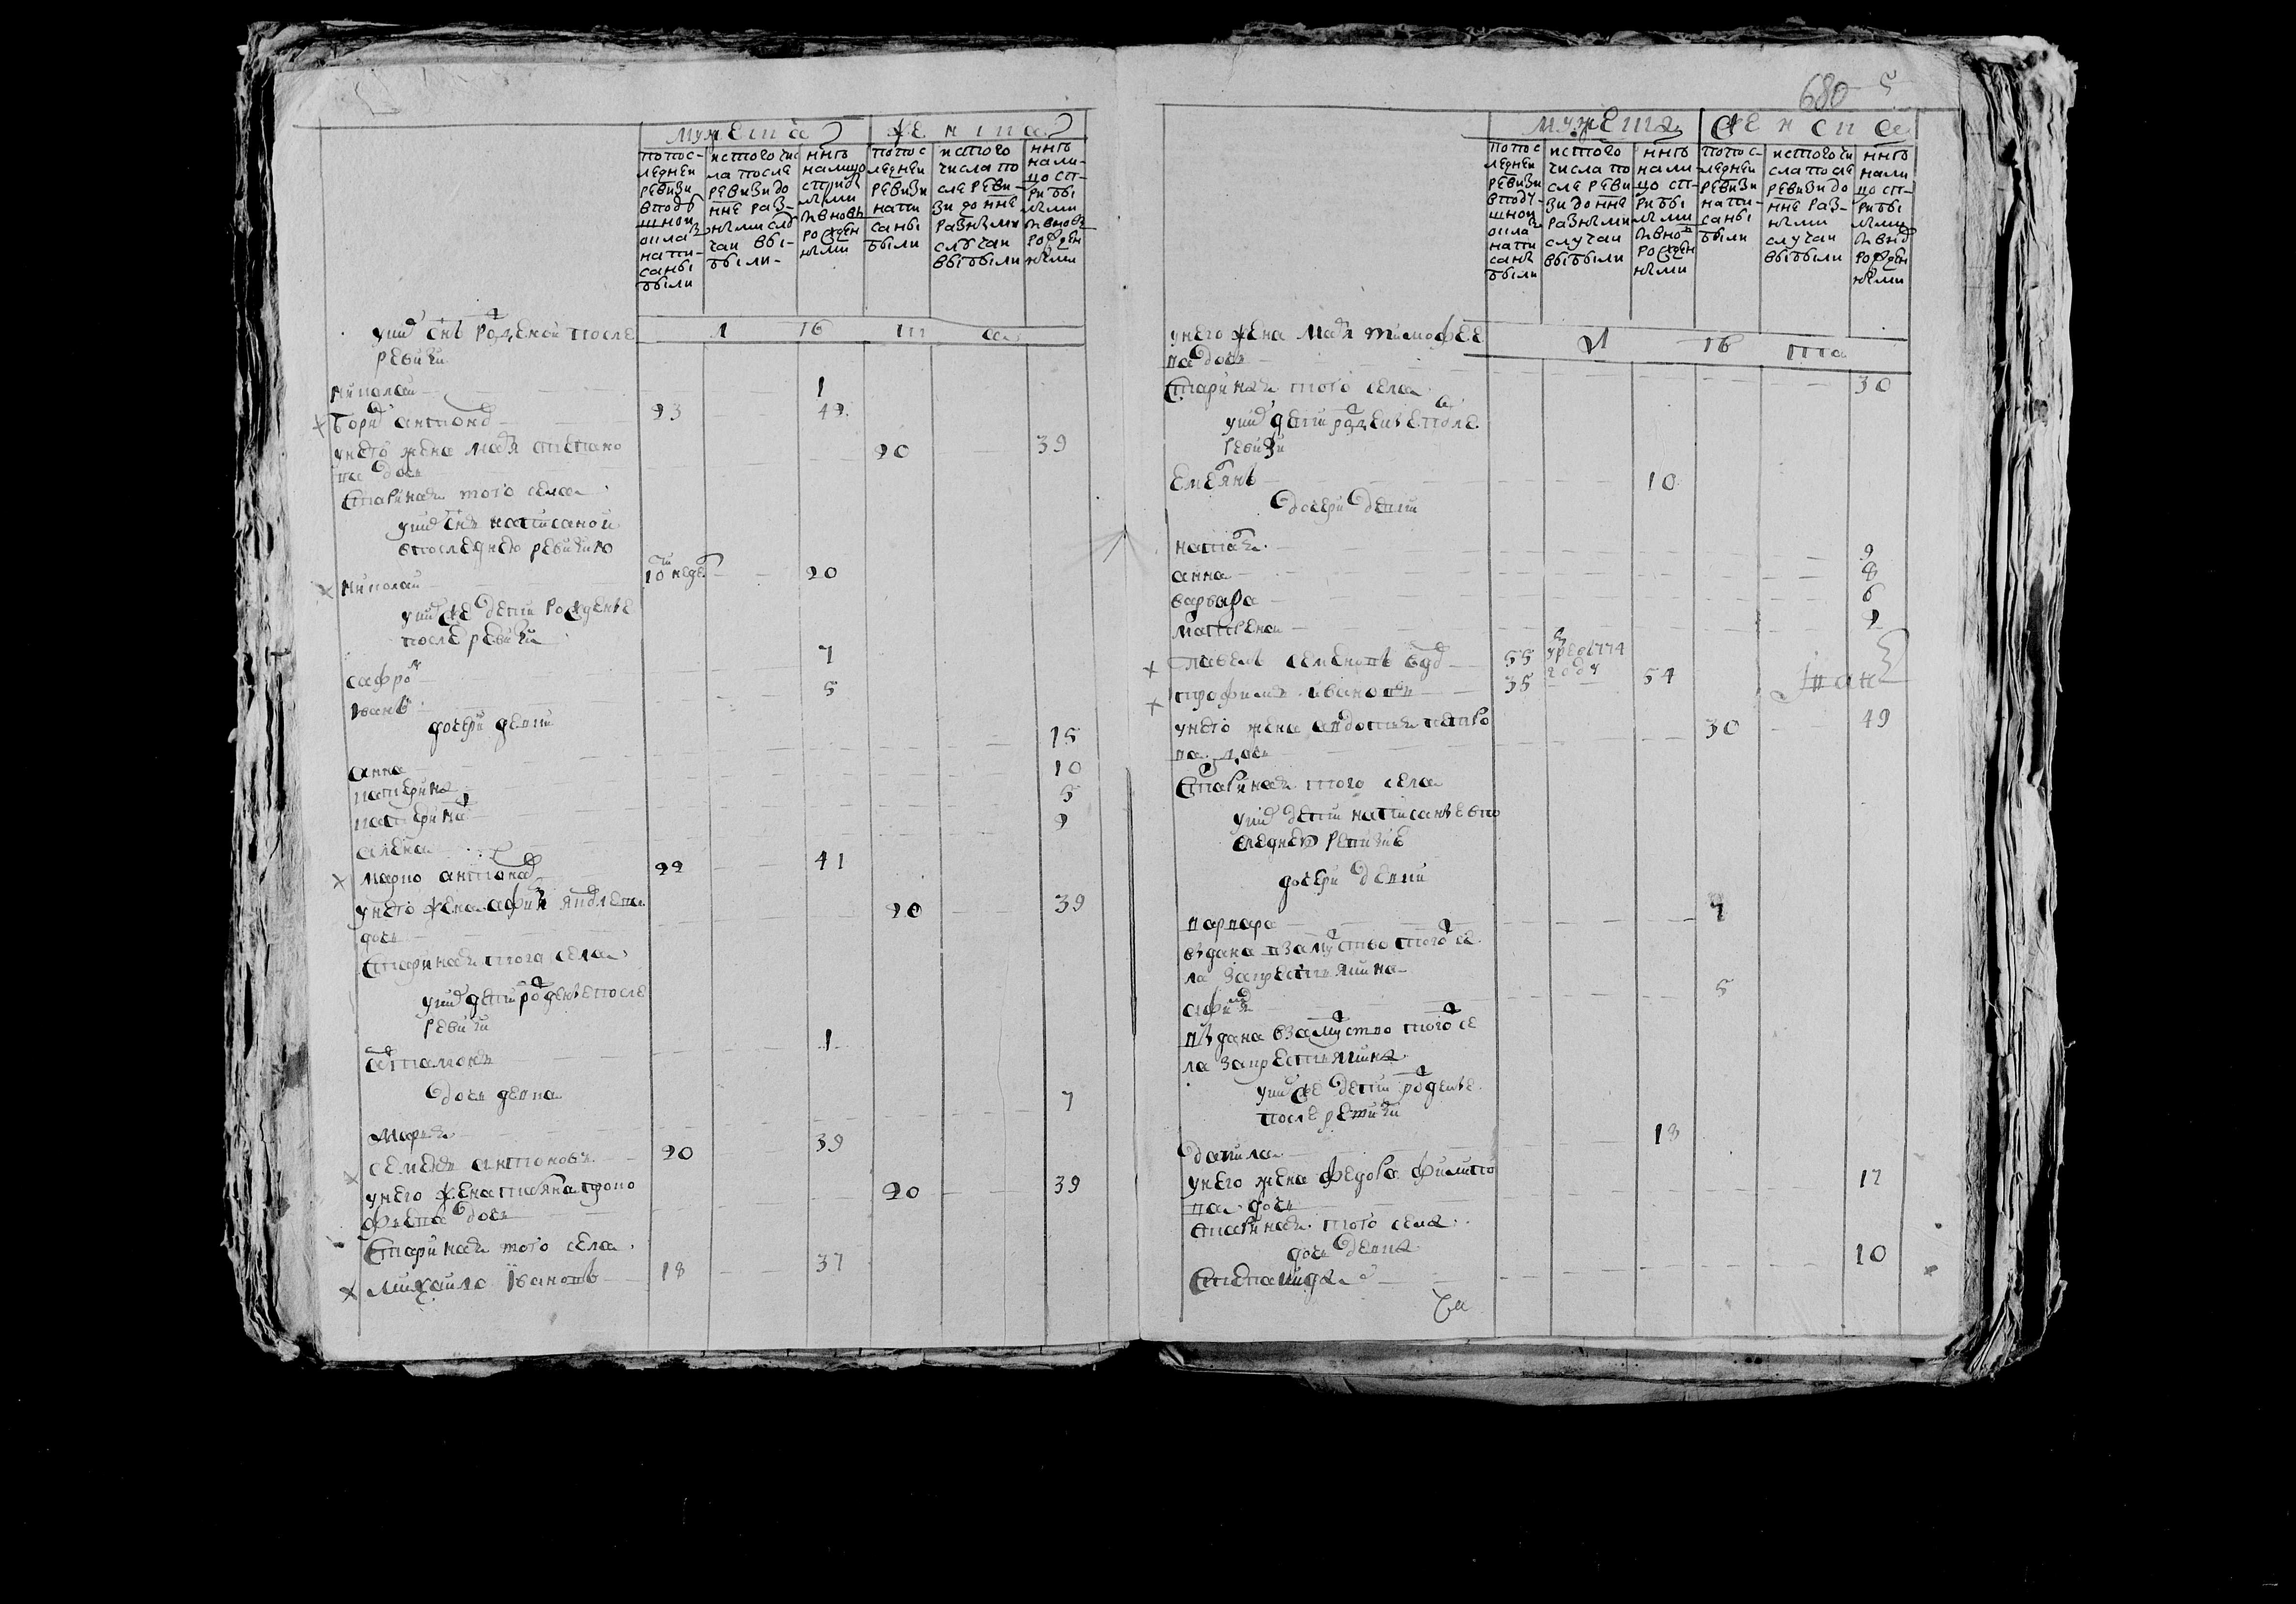 мужеска женска
попос-
леднеи
ревизи
вподу
шнои
окла
напи-
саны
были
истого чис
ла после
ревизи до
нне раз-
ными слу
чаи вы-
были-
ннѣ
налицо
стары
ми
и вновь
рожден
ными
попос
леднеи
ревизи
напи
саны
были
истого
числа по
сле реви-
зи до нне
разными
случаи
выбыли
ннѣ
нали-
цо ст-
ры
ми
и вновь
рожден
ными
лѣта
уних снъ рожденои после
ревизи
николаи 1
Борис антонов 23 42
унего жена маря степано
ва дочь 20 39
Старинная того села
уних снъ написанои
впоследнею ревизию
николаи 10 недель 20
уних же дети рожденые
после ревизи
сафрон 7
иванъ 5
дочери девки
анна 15
катерина 10
катерина 5
алена 2
марко антонов 22 41
унего жена афимя яковлева
дочь 20 39
Старинная того села
уних дети рожденые после
ревизи
артамонъ 1
дочь девка
Марья 7
семенъ антоновъ 20 39
унего жена татяна проко
фьева дочь 20 39
Старинная того села
михаило ивановъ 18 37
680 5
мужеска женска
попос
леднеи
ревизи
вподу-
шнои
окла
напи
саны
были
истого
числа по
сле реви
зи до нне
разными
случаи
выбыли
ннѣ
нали-
цо ст-
ры
ми
и вновь
рожден
ными
попос-
леднеи
ревизи
напи-
саны
были
истого чи
сла после
ревизи до
нне раз-
ными
случаи
выбыли
ннѣ
нали
цо ст-
ры
ми
и вновь
рожден
ными
лѣта
унего жена маря тимофее
ва дочь
Старинная того села 30
уних дети рожденые после
ревизи
емелянъ 10
дочери девки
наталя 9
анна 8
варвара 6
матрена 2
павелъ семеновъ 55 умре 1774 году
трофимъ ивановъ 35 54
унего жена авдотья петро
ва дочь 30 49
Старинная того села
уних дети написаные впо
следнею ревизию
дочери девки
варвара 7
выдана взамужство тогож се
ла закрестьянина
афимя 5
выдана взамужство тогож се
ла закрестьянина
уних же дети рожденые
после ревизи
данила 18
унего жена федора филипо
ва дочь 17
старинная того села
дочь девка
Степанида 10